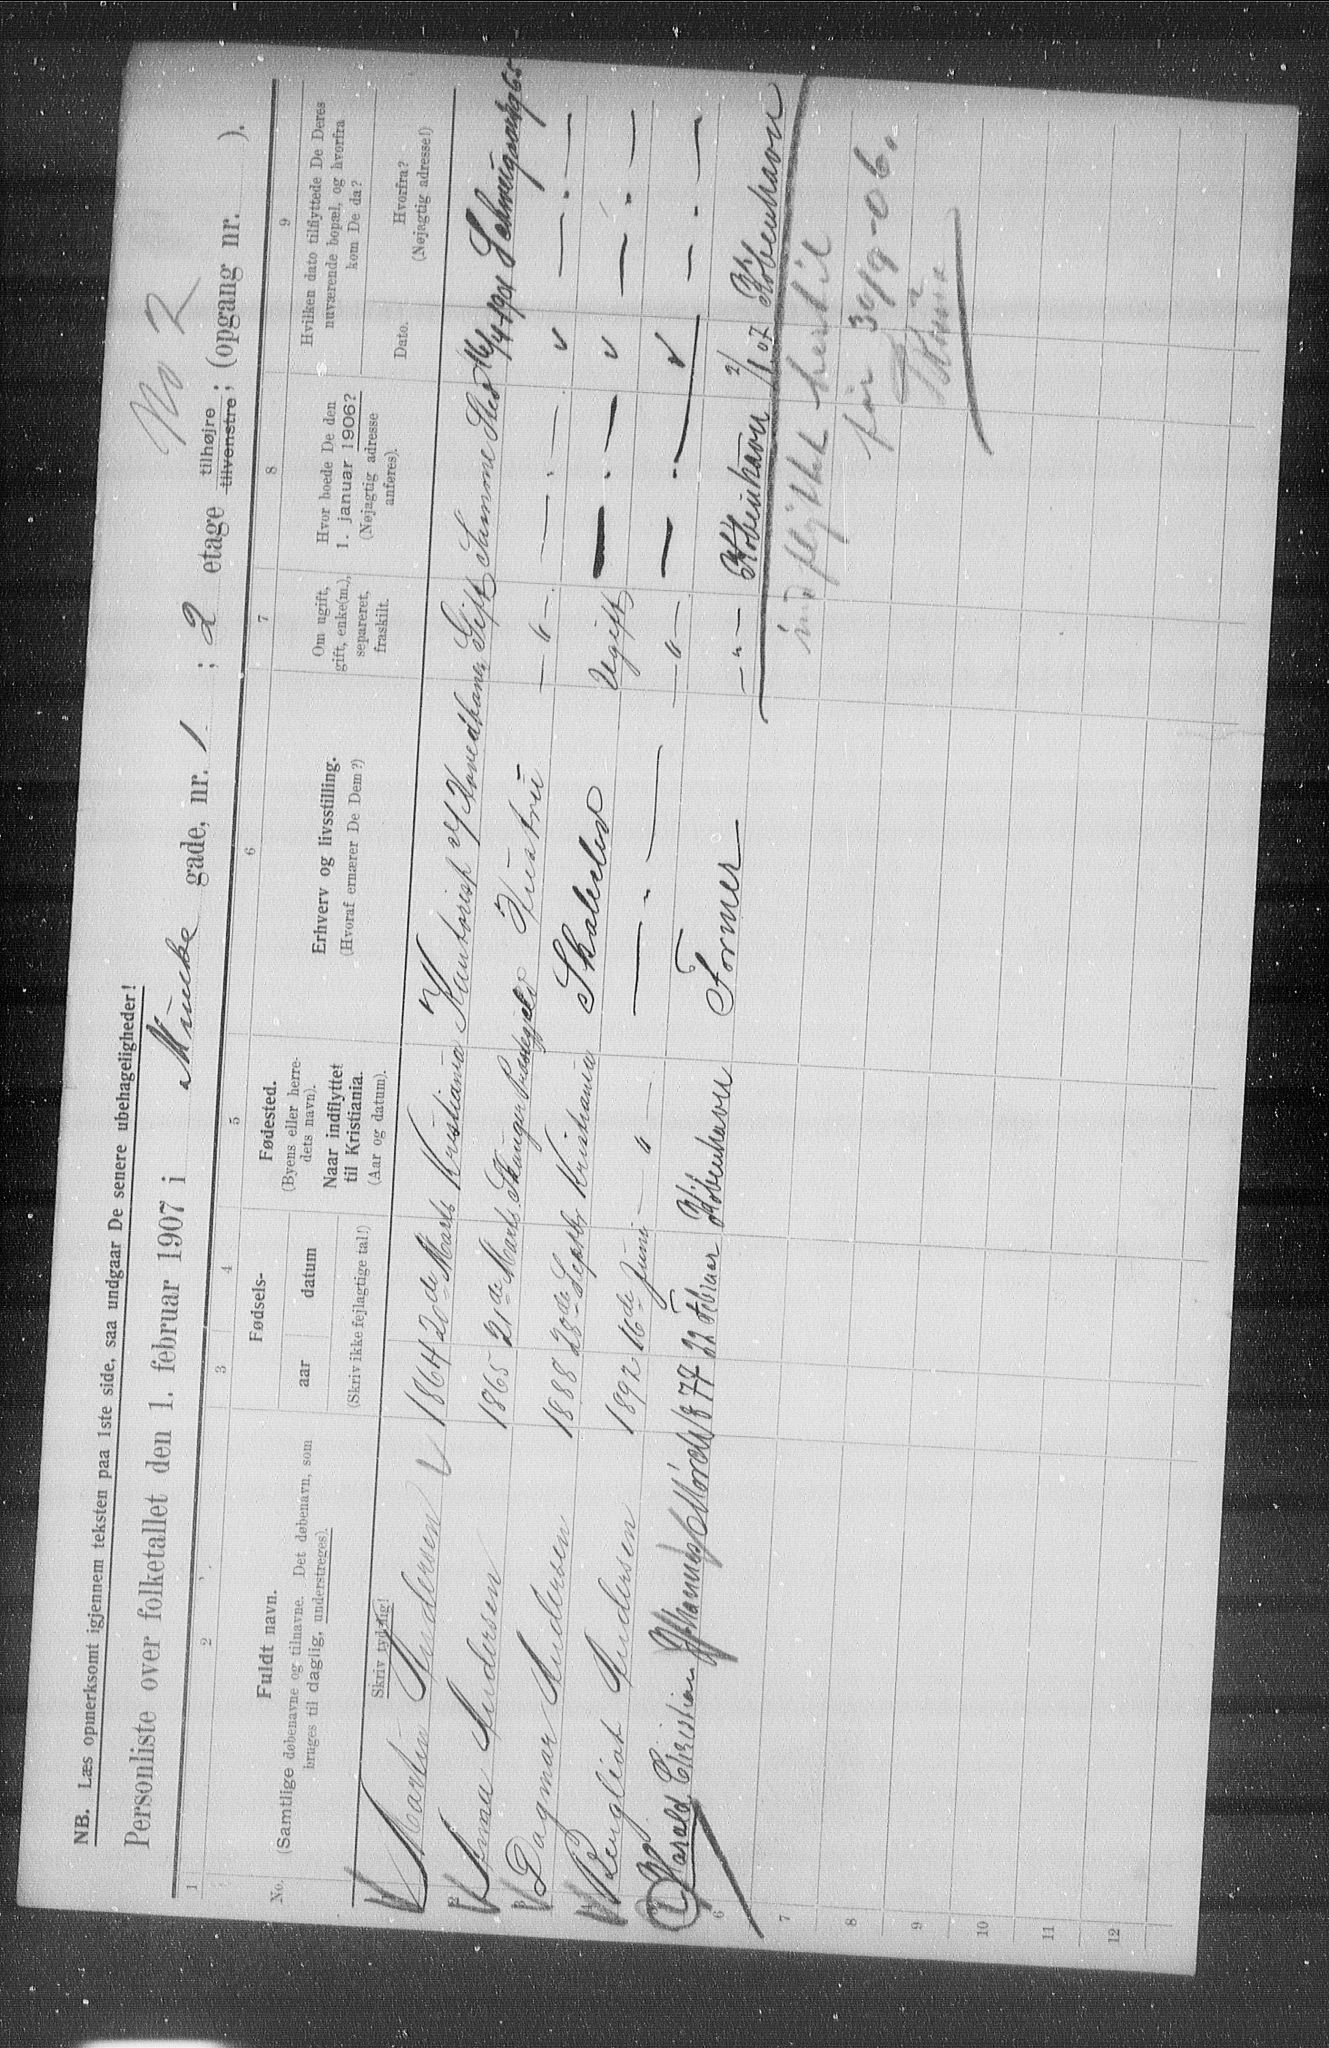 NB. Læs opmerksomt igjennem teksten paa 1ste side, saa undgaar De senere ubehageligheder!
Personliste over folketallet den 1. februar 1907 i Munke gade, nr. 1 ; 2 etage tilhøjre tilvenstre; (opgang nr. ).
No 2
1 2 3 4 5 6 7 8 9
No.
Fuldt navn.
(Samtlige døbenavne og tilnavne. Det døbenavn, som
bruges til daglig, understreges).
Skriv tydelig!
Fødsels-
aar datum
(Skriv ikke fejlagtige tal!)
Fødested.
(Byens eller herre-
dets navn).
Naar indflyttet
til Kristiania.
(Aar og datum).
Erhverv og livsstilling.
(Hvoraf ernærer De Dem?)
Om ugift,
gift, enke(m.),
separeret,
fraskilt.
Hvor boede De den
1. januar 1906?
(Nøjagtig adresse
anføres).
Hvilken dato tilflyttede De Deres
nuværende bopæl, og hvorfra
kom De da?
Dato.
Hvorfra?
(Nøjagtig adresse!)
Martin Andersen 1864 20de Marts Kristiania Kontorist Gift Samme Sted 16/4 1901
2 Anna Andersen 1865 21de Marts Hustru — " — — . — v — . —
3 Dagmar Andersen 1888 28de Septbr Kristiania Skoleelev Ugift — . — v — . —
4 Andersen 1892 16de Juni — " — — . — — " — — . — v — . —
Harald Christian Johannes 1877 22 Februar København Former — " — København 2/1 07 København
6
7
8
9
10
11
12
indflyttet hertil
før 30/9-06.